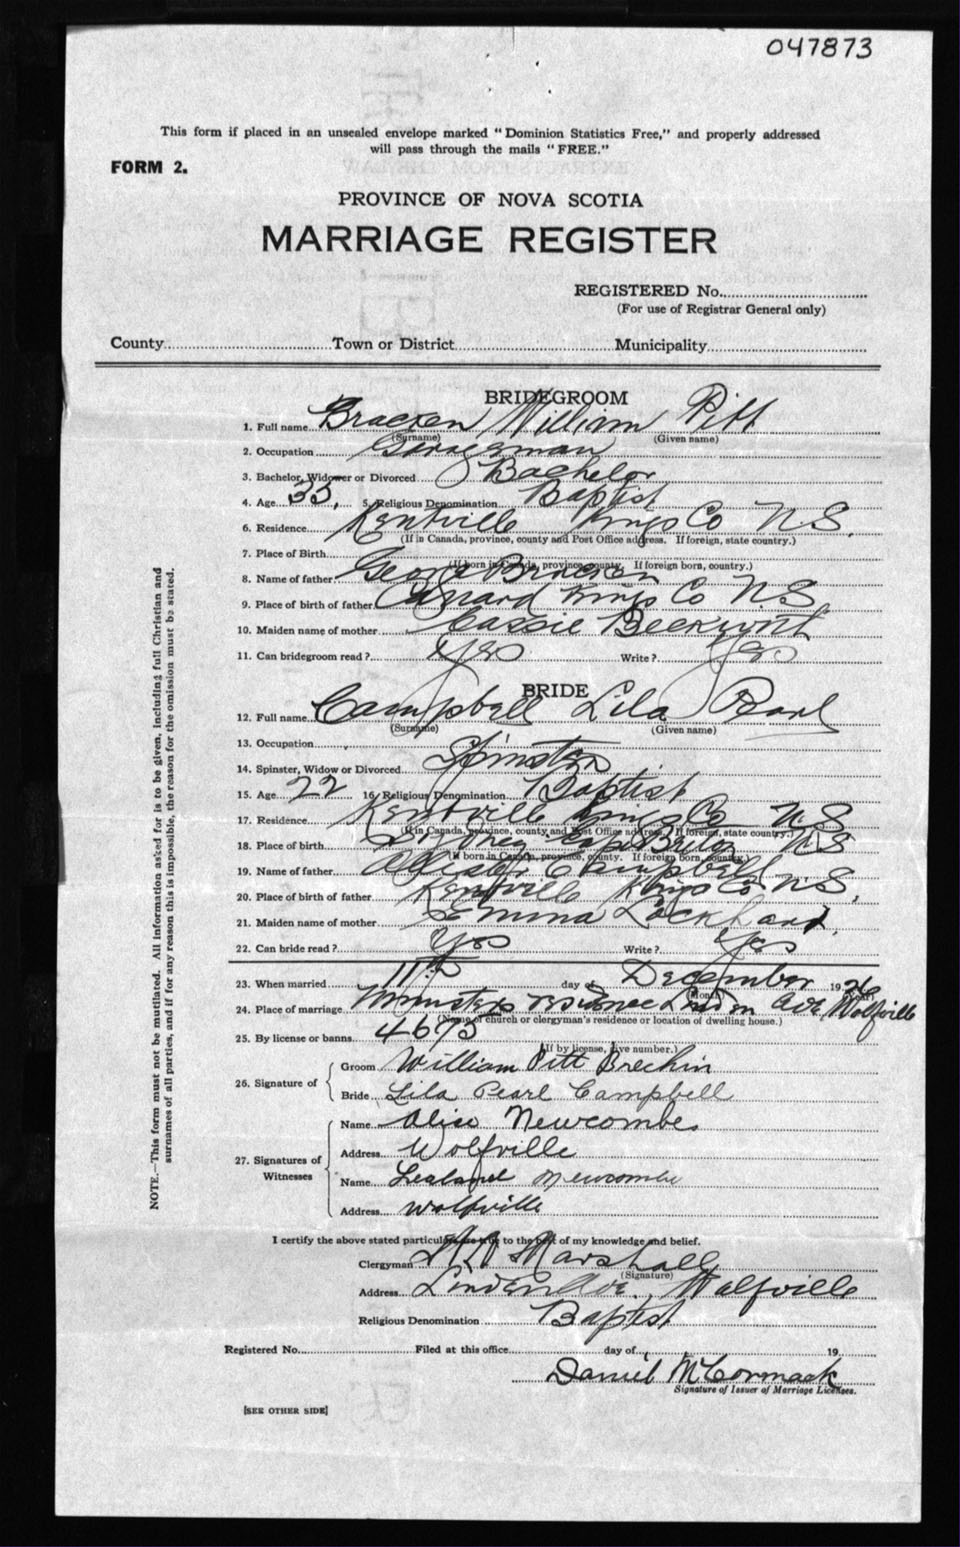 047873
This form if placed in an unsealed envelope marked "Dominion Statistics Free," and properly addressed
will pass through the mails "FREE."
FORM 2.
PROVINCE OF NOVA SCOTIA
MARRIAGE REGISTER
REGISTERED No.
(For use of Registrar General only)
County Town or District Municipality
BRIDEGROOM
1. Full name Bracken William Pitt
(Surname) (Given name)
2. Occupation Garageman
3. Bachelor, Widower or Divorced Bachelor
4. Age 33, 5. Religious Denomination Baptist
6. Residence Kentville Kings Co N.S.
(If in Canada, province, county and Post Office address. If foreign, state country.)
7. Place of Birth
(If born in Canada, province, county. If foreign born, country.)
8. Name of father George Bracken
9. Place of birth of father Canard Kings Co N.S.
10. Maiden name of mother Cassie Beckwith
11. Can bridegroom read? Yes Write? Yes
BRIDE
12. Full name Campbell Lila Parl
(Surname) (Given name)
13. Occupation
14. Spinster, Widow or Divorced Spinster
15. Age 22 16. Religious Denomination Baptist
17. Residence Kentville Kings Co N.S
(If in Canada, province, county and Post Office address. If foreign, state country.)
18. Place of birth Sydney Cape Briton NS
(If born in Canada, province, county. If foreign born, country.)
19. Name of father Campbell
20. Place of birth of father Kentville Kings Co N.S,
21. Maiden name of mother Emma Lockhard,
22. Can bride read? Yes Write? Yes
23. When married 11th day of December 1926
(Month) (Year)
24. Place of marriage Minsters residence Linden Ave Wolfville
(Name of church or clergyman's residence or location of dwelling house.)
25. By license or banns 4693
(If by license, give number.)
26. Signature of
Groom William Pitt Brechin
Bride Lila Pearl Campbell
27. Signatures of Witnesses
Name Alise Newcombe
Address Wolfville
Name Lealand Newcombe
Address Wolfville
I certify the above stated particulars are true to the best of my knowledge and belief.
Clergyman Marshall
(Signature)
Address Linden Ave. Wolfville
Religious Denomination Baptist
Registered No. Filed at this office day of 19
Daniel McCormack
Signature of Issuer of Marriage Licenses.
[SEE OTHER SIDE]
NOTE.—This form must not be mutilated. All information asked for is to be given, including full Christian and
surnames of all parties, and if for any reason this is impossible, the reason for the omission must be stated.